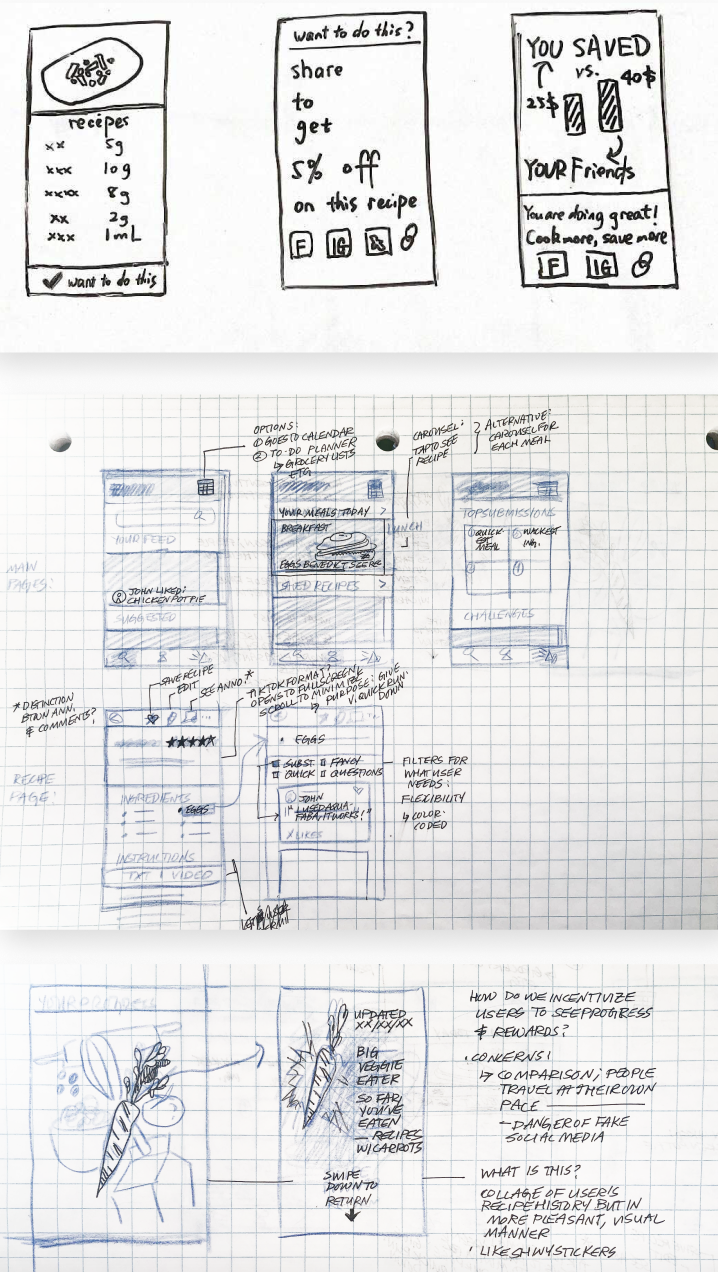 recépes
xx 5g
xxx 10g
xxxx 8g
xx 2g
xxx 1mL
✓ want to do this
want to do this?
share
to
get
5% off
on this recipe
F IG
YOU SAVED
vs.
25$
40$
YOUR Friends
You are doing great!
Cook more, save more
F IG
OPTIONS:
① GOES TO CALENDAR
② TO-DO PLANNER
↳ GROCERY LISTS
ETC
CAROUSEL:
TAP TO SEE
RECIPE
? ALTERNATIVE:
CAROUSEL FOR
EACH MEAL
MAIN
PAGES:
YOUR FEED
JOHN LIKED:
CHICKEN POT PIE
SUGGESTED
YOUR MEALS TODAY >
BREAKFAST
LUNCH
EGGS BENEDICT
SAVED RECIPES >
TOP SUBMISSIONS
QUICK
MEAL
WACKEST
ING.
CHALLENGES
* DISTINCTION
BTWN ANN.
& COMMENTS?
SAVE RECIPE
EDIT
SEE ANNO.*
TIKTOK FORMAT?
OPENS TO FULLSCREEN,
SCROLL TO MINIMIZE
↳ PURPOSE: GIVE
V. QUICK RUN-
DOWN
RECIPE
PAGE:
INGREDIENTS
• EGGS
INSTRUCTIONS
TXT | VIDEO
• EGGS
SUBST FANCY
QUICK QUESTIONS
JOHN
"I USED AQUA-
FABA, IT WORKS!"
X LIKES
FILTERS FOR
WHAT USER
NEEDS:
FLEXIBILITY
↳ COLOR-
CODED
YOUR PROGRESS
UPDATED
XX/XX/XX
BIG
VEGGIE
EATER
SO FAR,
YOU'VE
EATEN
__ RECIPES
W/ CARROTS
SWIPE
DOWN TO
RETURN
HOW DO WE INCENTIVIZE
USERS TO SEE PROGRESS
& REWARDS?
• CONCERNS:
↳ COMPARISON; PEOPLE
TRAVEL AT THEIR OWN
PACE
— DANGER OF FAKE
SOCIAL MEDIA
WHAT IS THIS?
COLLAGE OF USER'S
RECIPE HISTORY BUT IN
MORE PLEASANT, VISUAL
MANNER
• LIKE SHWY STICKERS